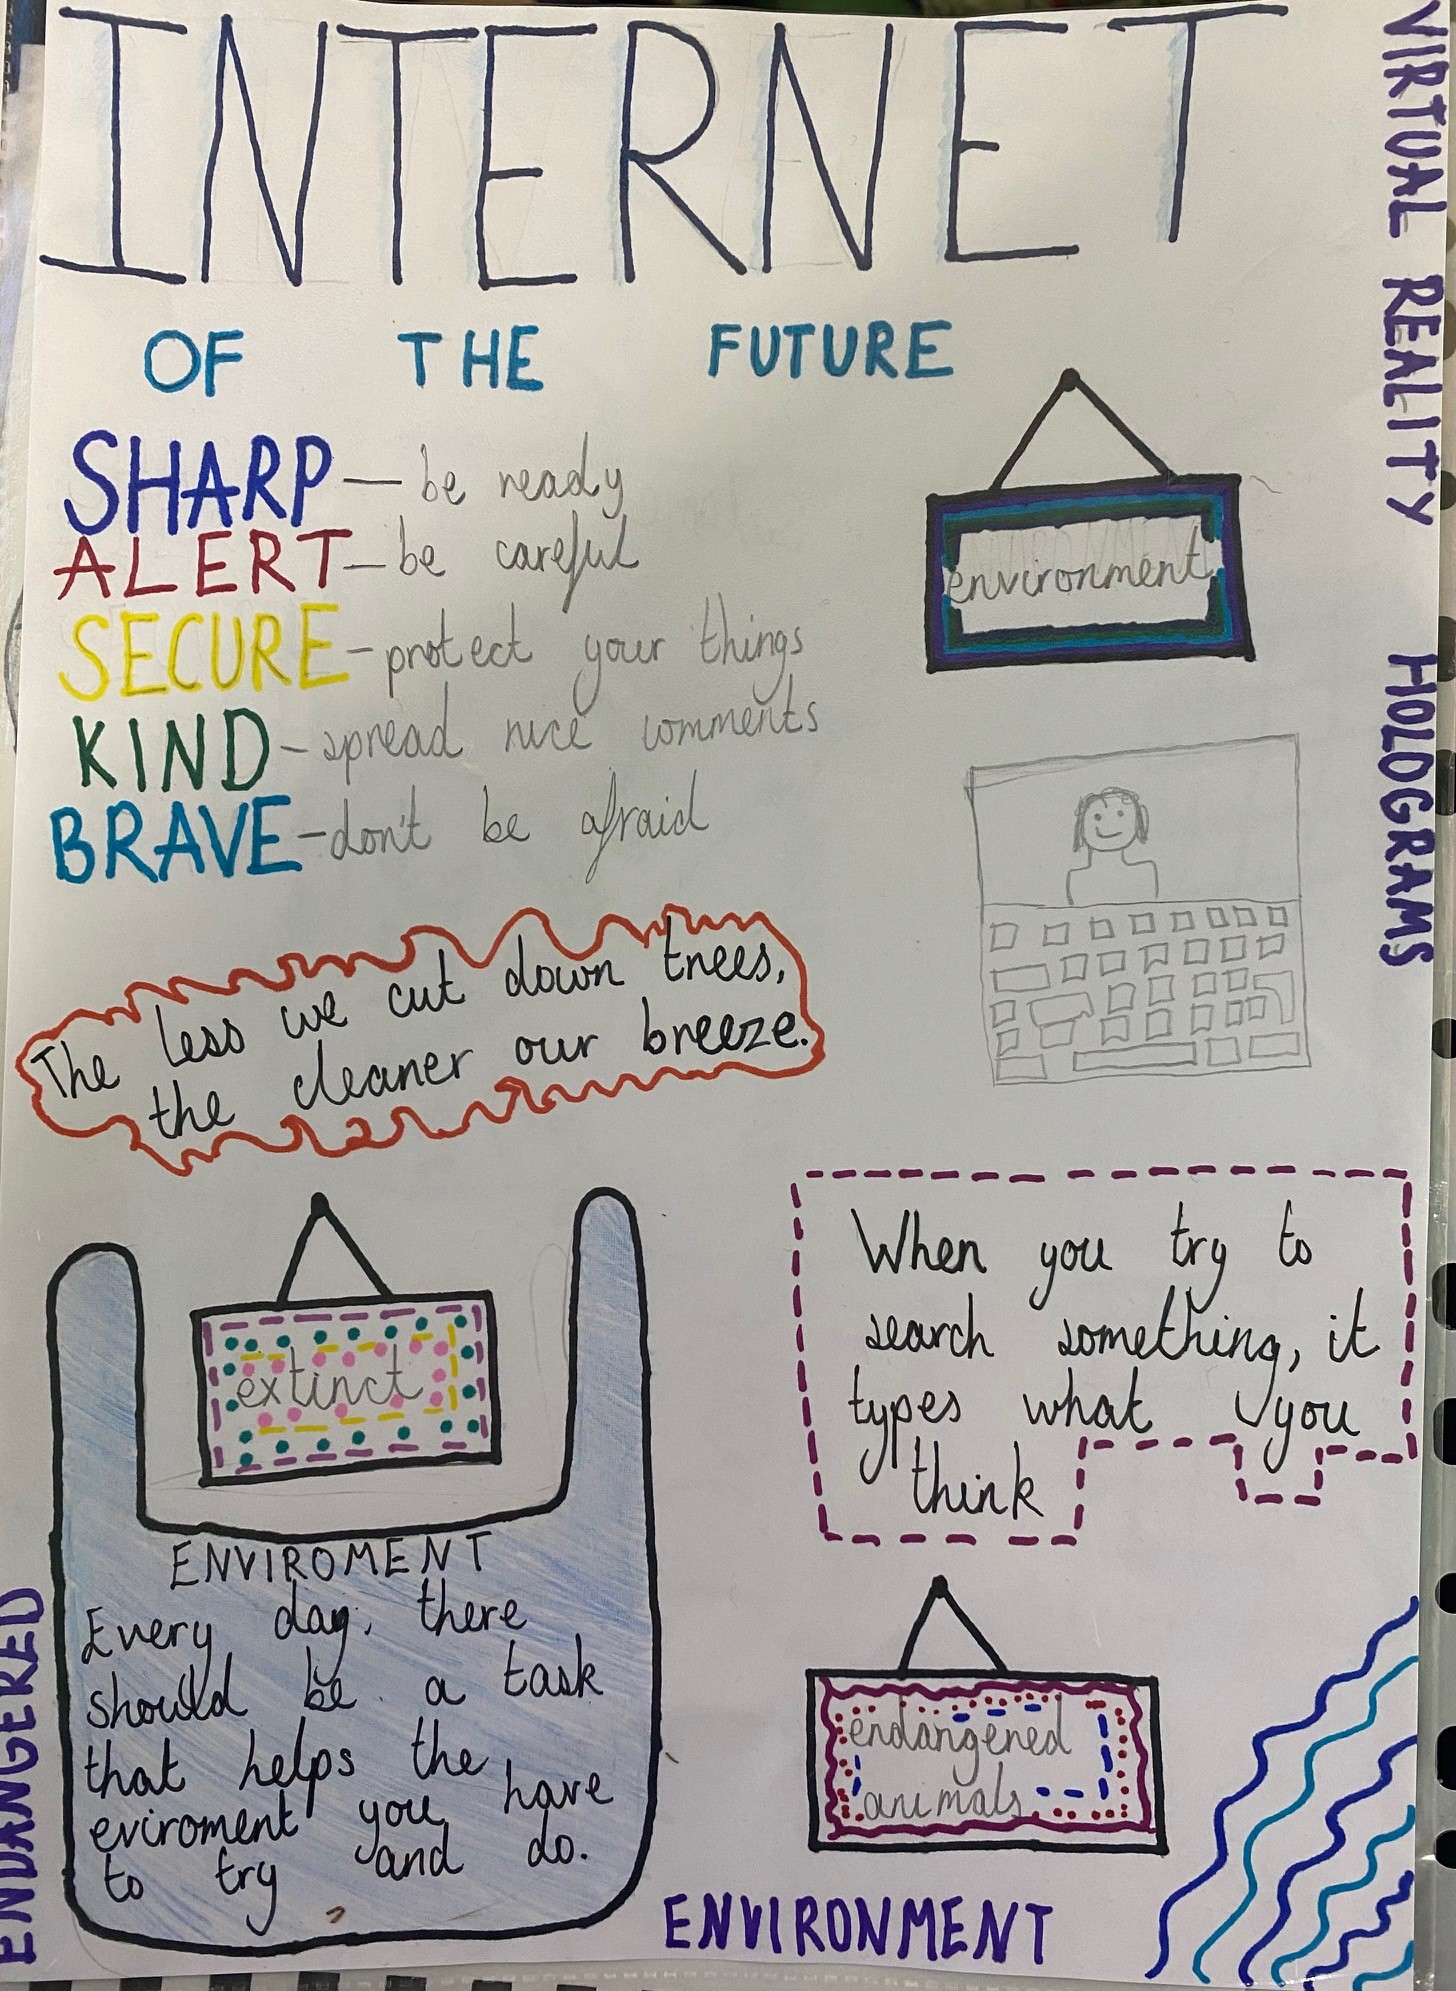 INTERNET
OF THE FUTURE
VIRTUAL REALITY HOLOGRAMS
SHARP — be ready
ALERT — be careful
SECURE - protect your things
KIND - spread nice comments
BRAVE - don't be afraid
environment
The less we cut down trees,
the cleaner our breeze.
extinct
When you try to
search something, it
types what you
think
ENVIROMENT
Every day, there
should be a task
that helps the
eviroment you have
to try and do.
endangered
animals
ENDANGERED
ENVIRONMENT